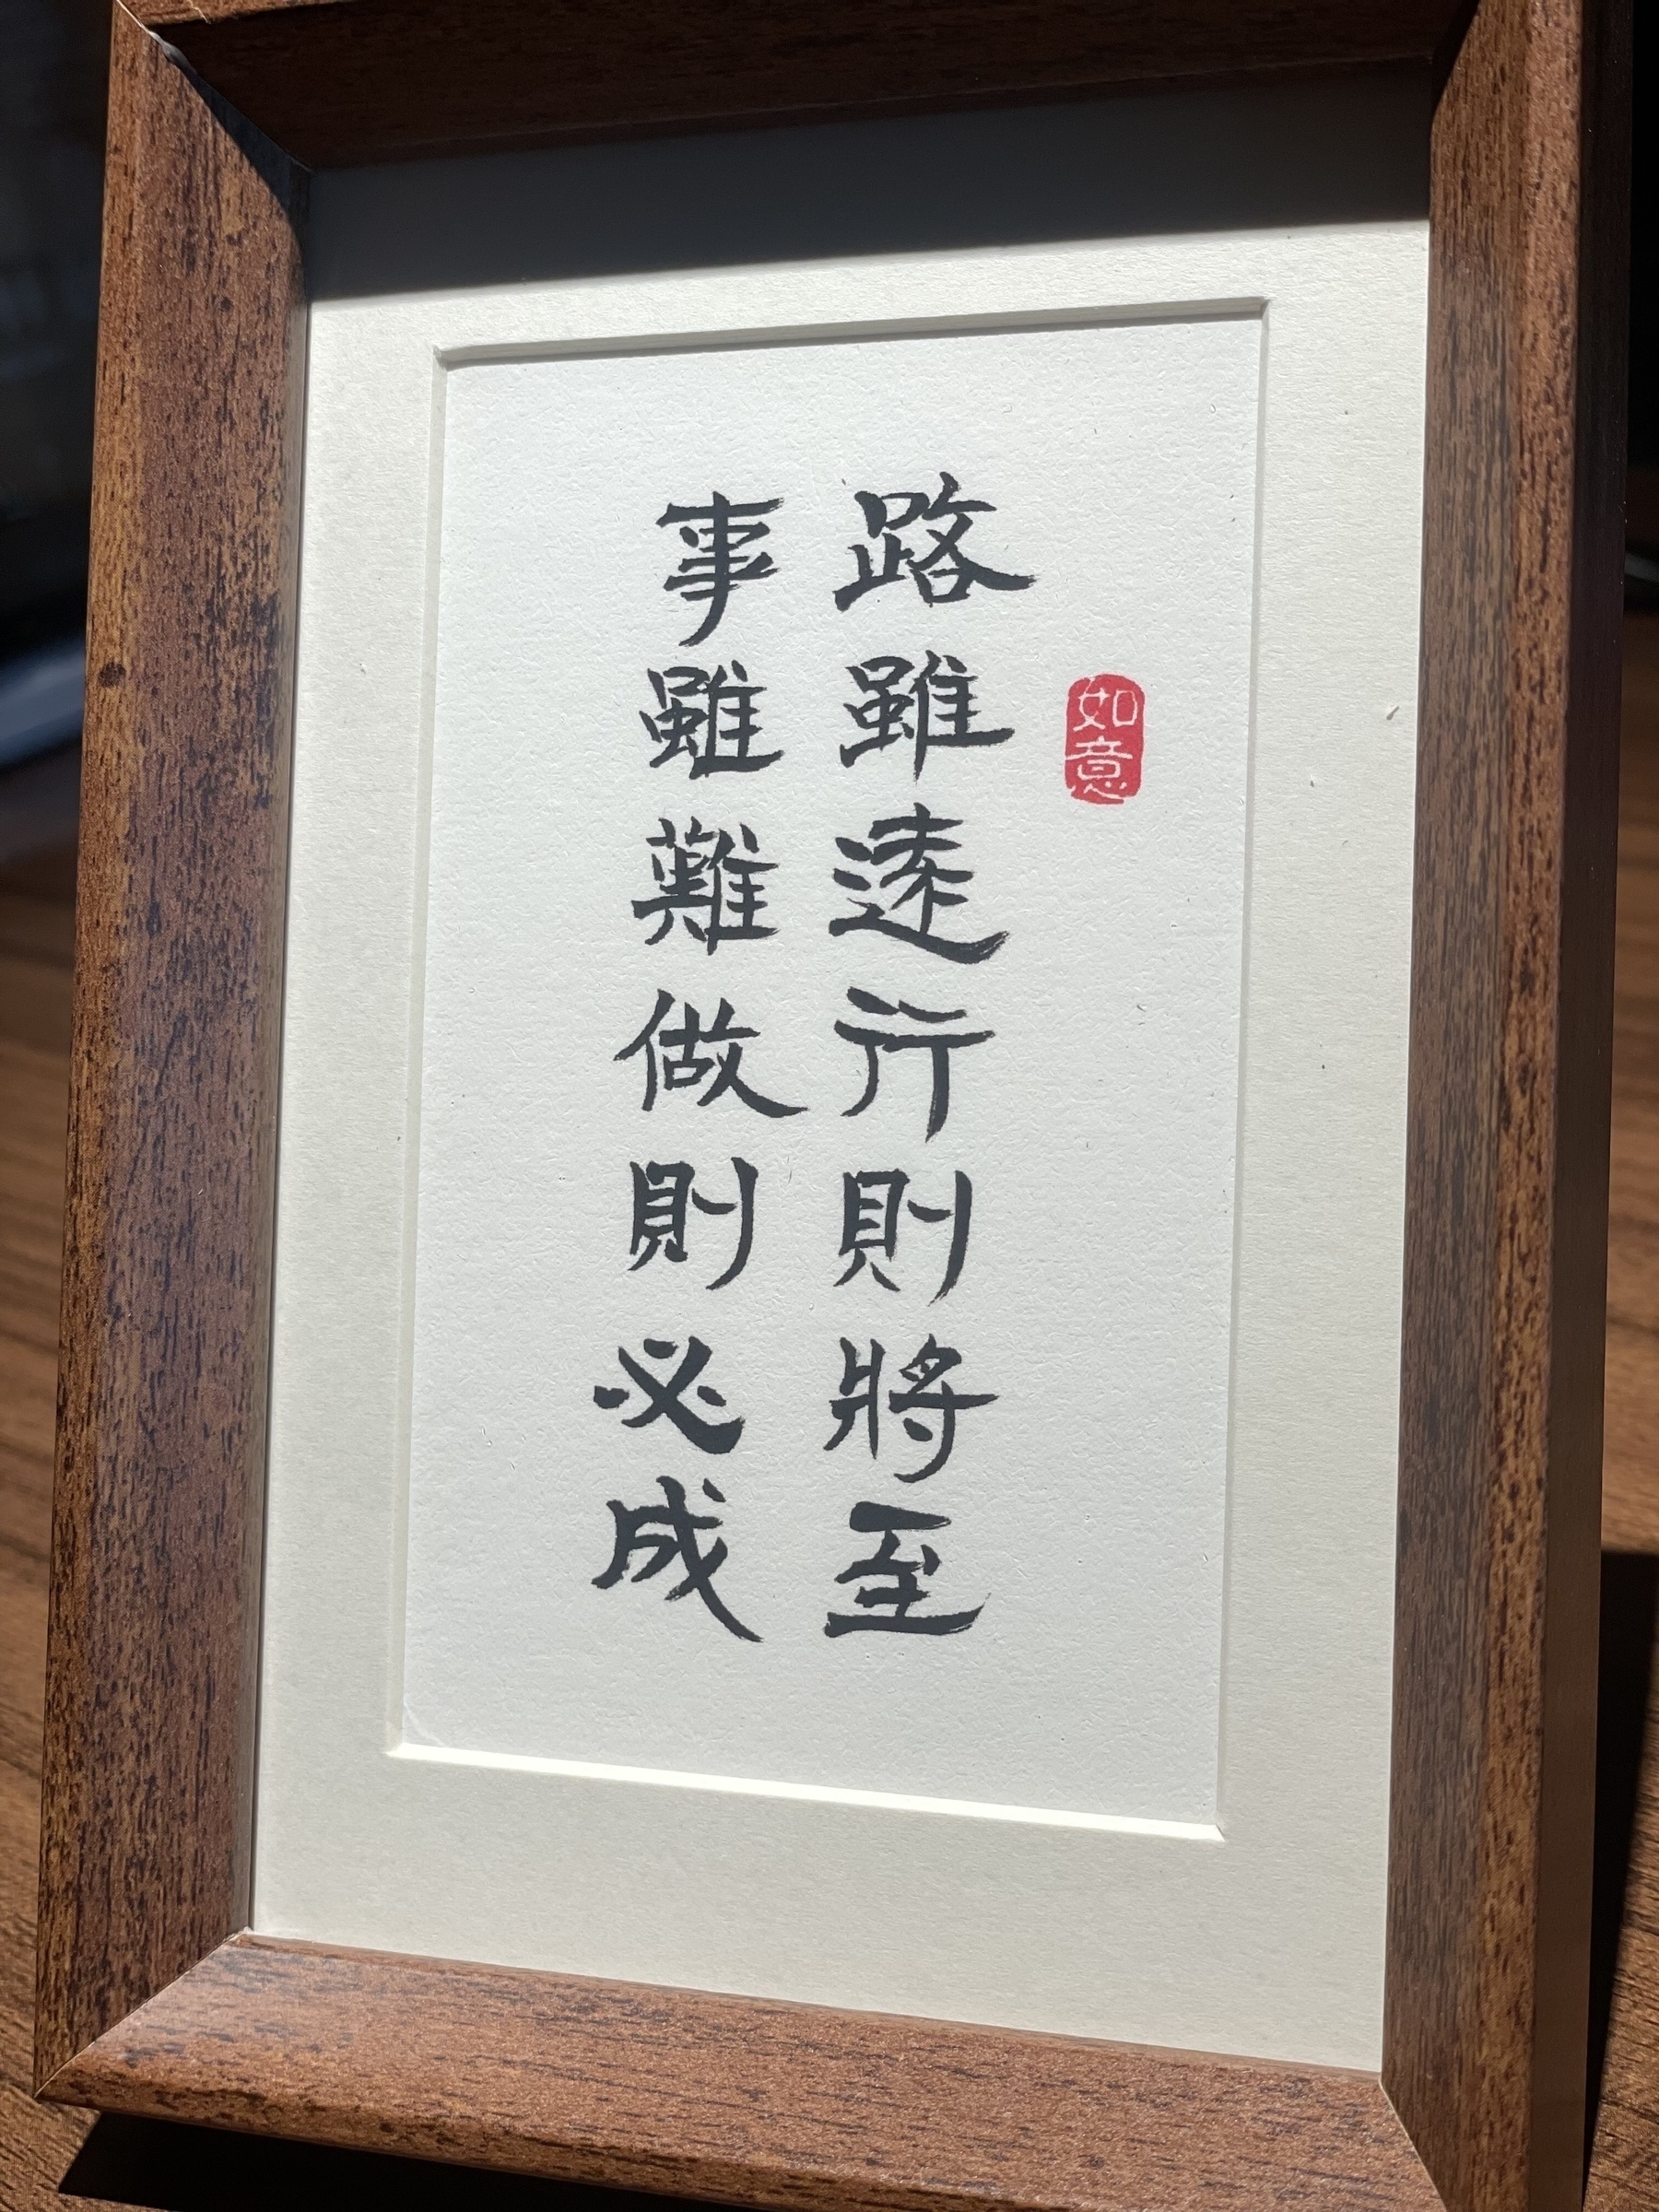 如意
路雖遠行則將至
事雖難做則必成